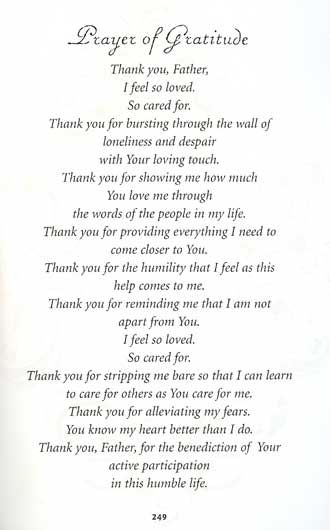 Prayer of Gratitude
Thank you, Father,
I feel so loved.
So cared for.
Thank you for bursting through the wall of
loneliness and despair
with Your loving touch.
Thank you for showing me how much
You love me through
the words of the people in my life.
Thank you for providing everything I need to
come closer to You.
Thank you for the humility that I feel as this
help comes to me.
Thank you for reminding me that I am not
apart from You.
I feel so loved.
So cared for.
Thank you for stripping me bare so that I can learn
to care for others as You care for me.
Thank you for alleviating my fears.
You know my heart better than I do.
Thank you, Father, for the benediction of Your
active participation
in this humble life.
249